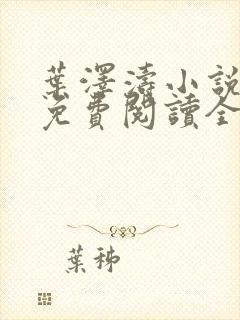 葉澤濤小說
免費閱讀全
葉秭